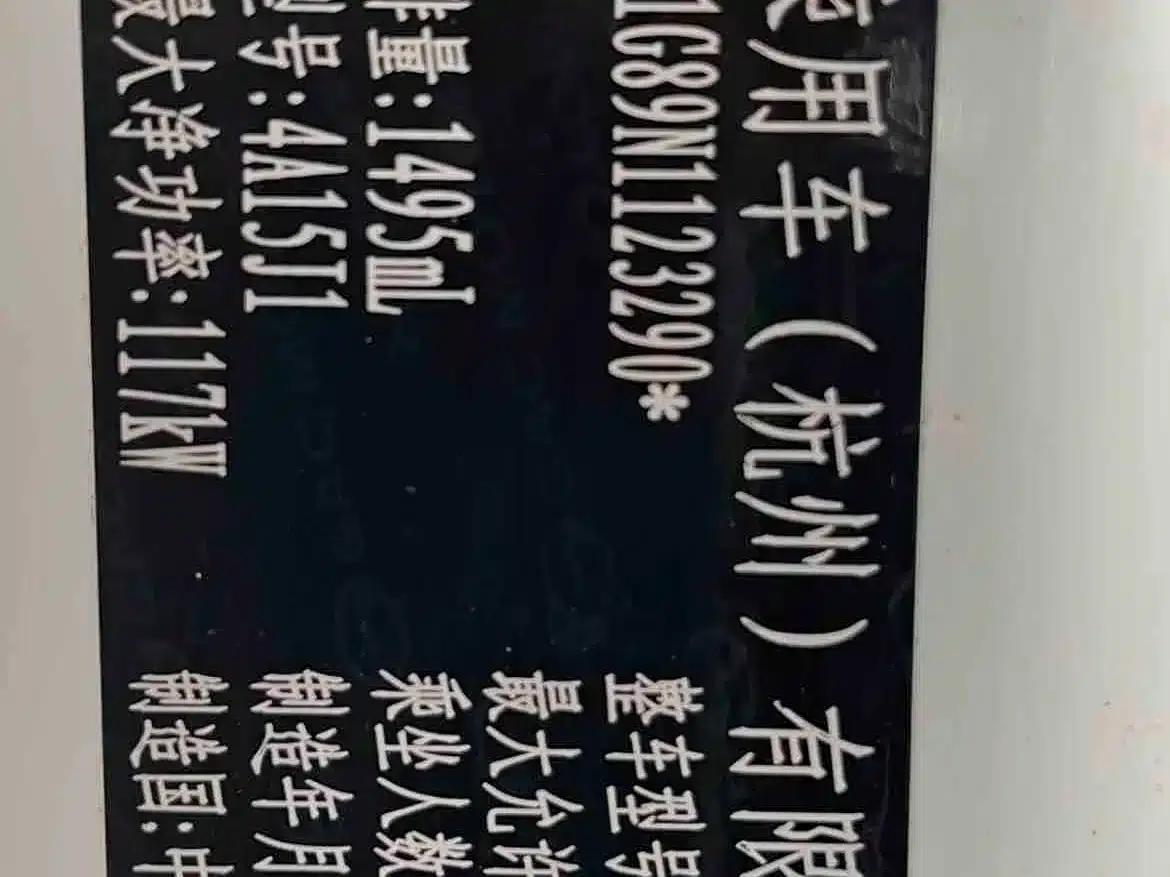 用车（杭州）有限
1G89N1123290* 整车型号
最大允许
排量:1495mL 乘坐人数
型号:4A15J1 制造年月
最大净功率:117kW 制造国:中